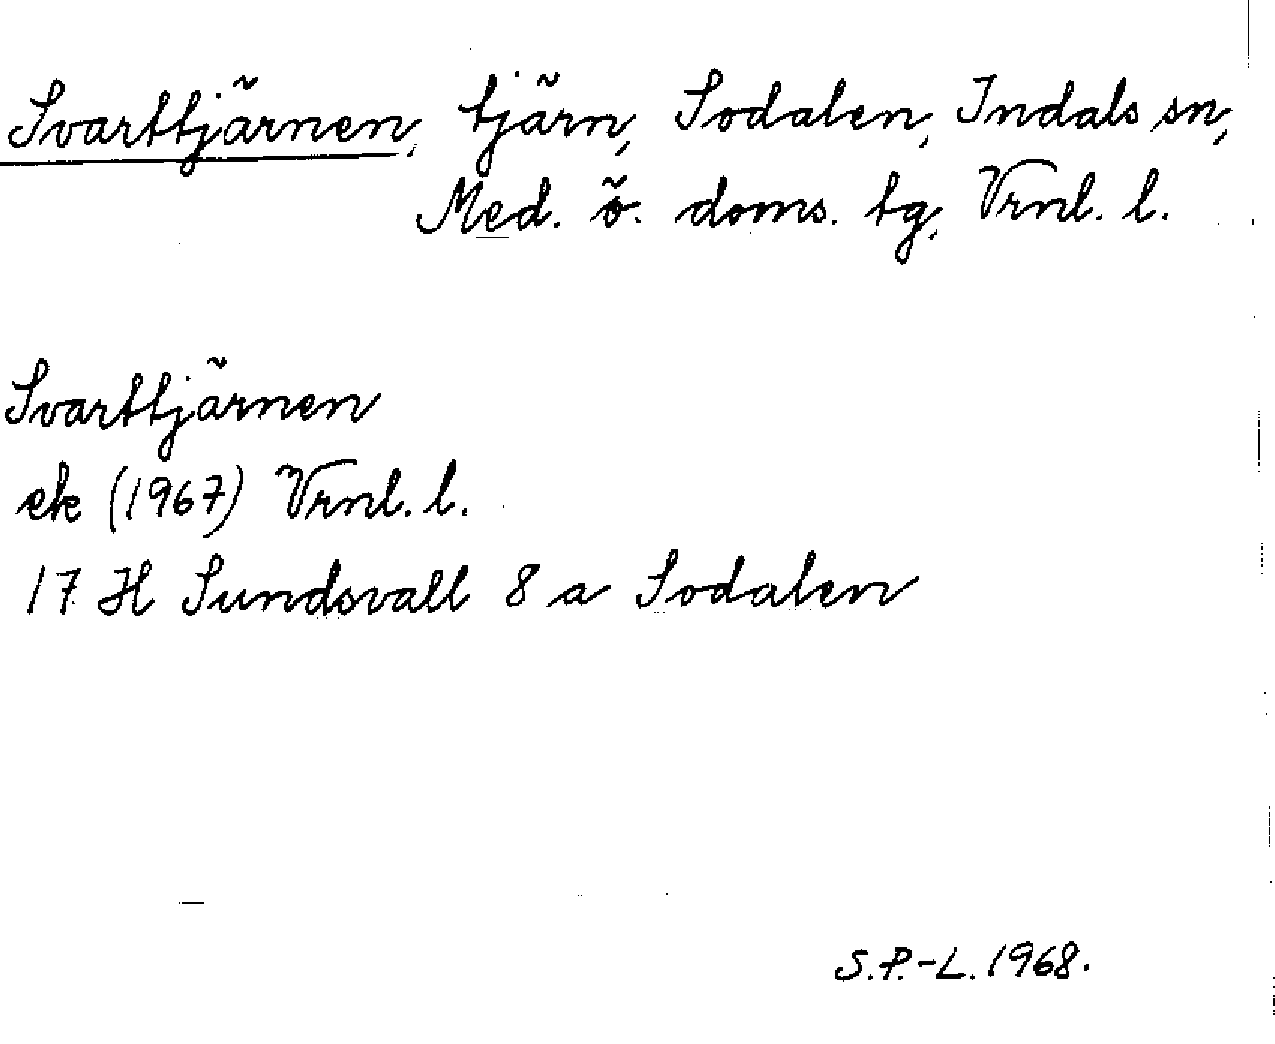 Svarttjärnen, tjärn, Sodalen, Indals sn,
Med. ö. doms. tg, Vrnl. l.
Svarttjärnen
ek (1967) Vrnl. l.
17 H Sundsvall 8 a Sodalen
S.P.-L. 1968.